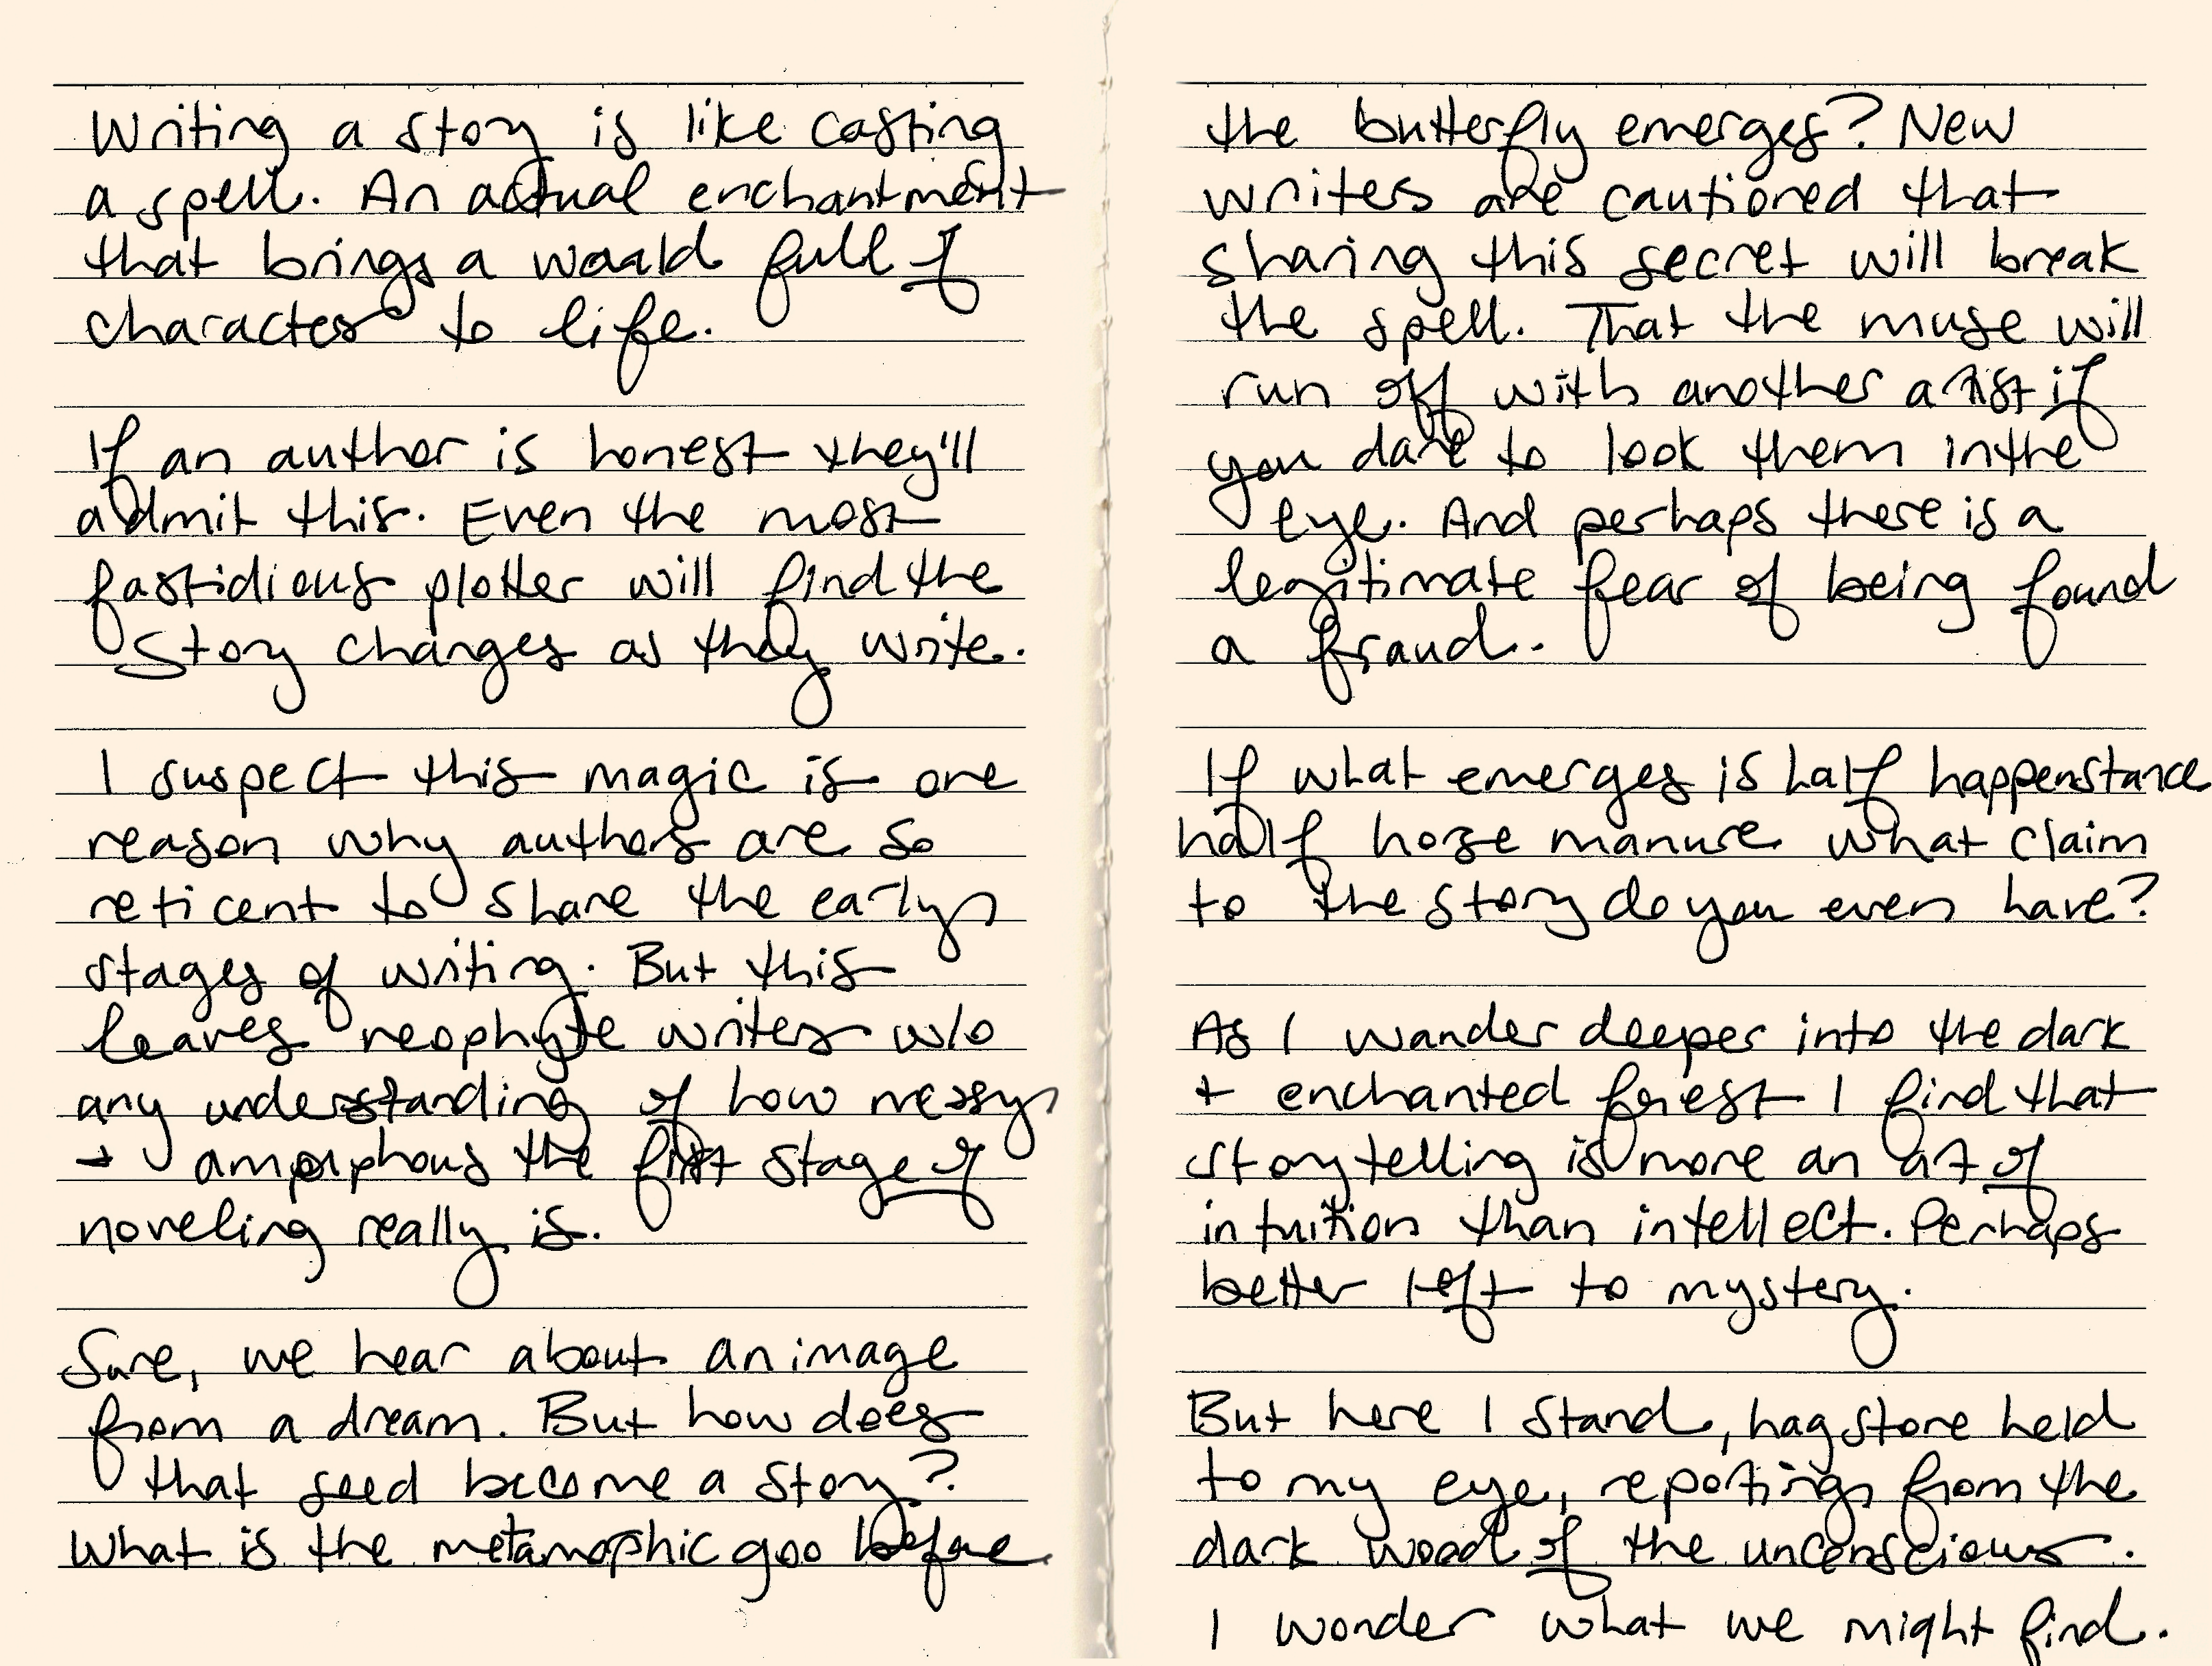 Writing a story is like casting
a spell. An actual enchantment
that brings a world full of
characters to life.
If an author is honest they'll
admit this. Even the most
fastidious plotter will find the
story changes as they write.
I suspect this magic is one
reason why authors are so
reticent to share the early
stages of writing. But this
leaves neophyte writers w/o
any understanding of how messy
+ amorphous the first stage of
noveling really is.
Sure, we hear about an image
from a dream. But how does
that seed become a story?
What is the metamophic goo before
the butterfly emerges? New
writers are cautioned that
sharing this secret will break
the spell. That the muse will
run off with another artist if
you dare to look them in the
eye. And perhaps there is a
legitimate fear of being found
a fraud.
If what emerges is half happenstance
half horse manure what claim
to the story do you even have?
As I wander deeper into the dark
+ enchanted forest I find that
storytelling is more an art of
intuition than intellect. Perhaps
better left to mystery.
But here I stand, hagstone held
to my eye, reporting from the
dark wood of the unconscious.
I wonder what we might find.